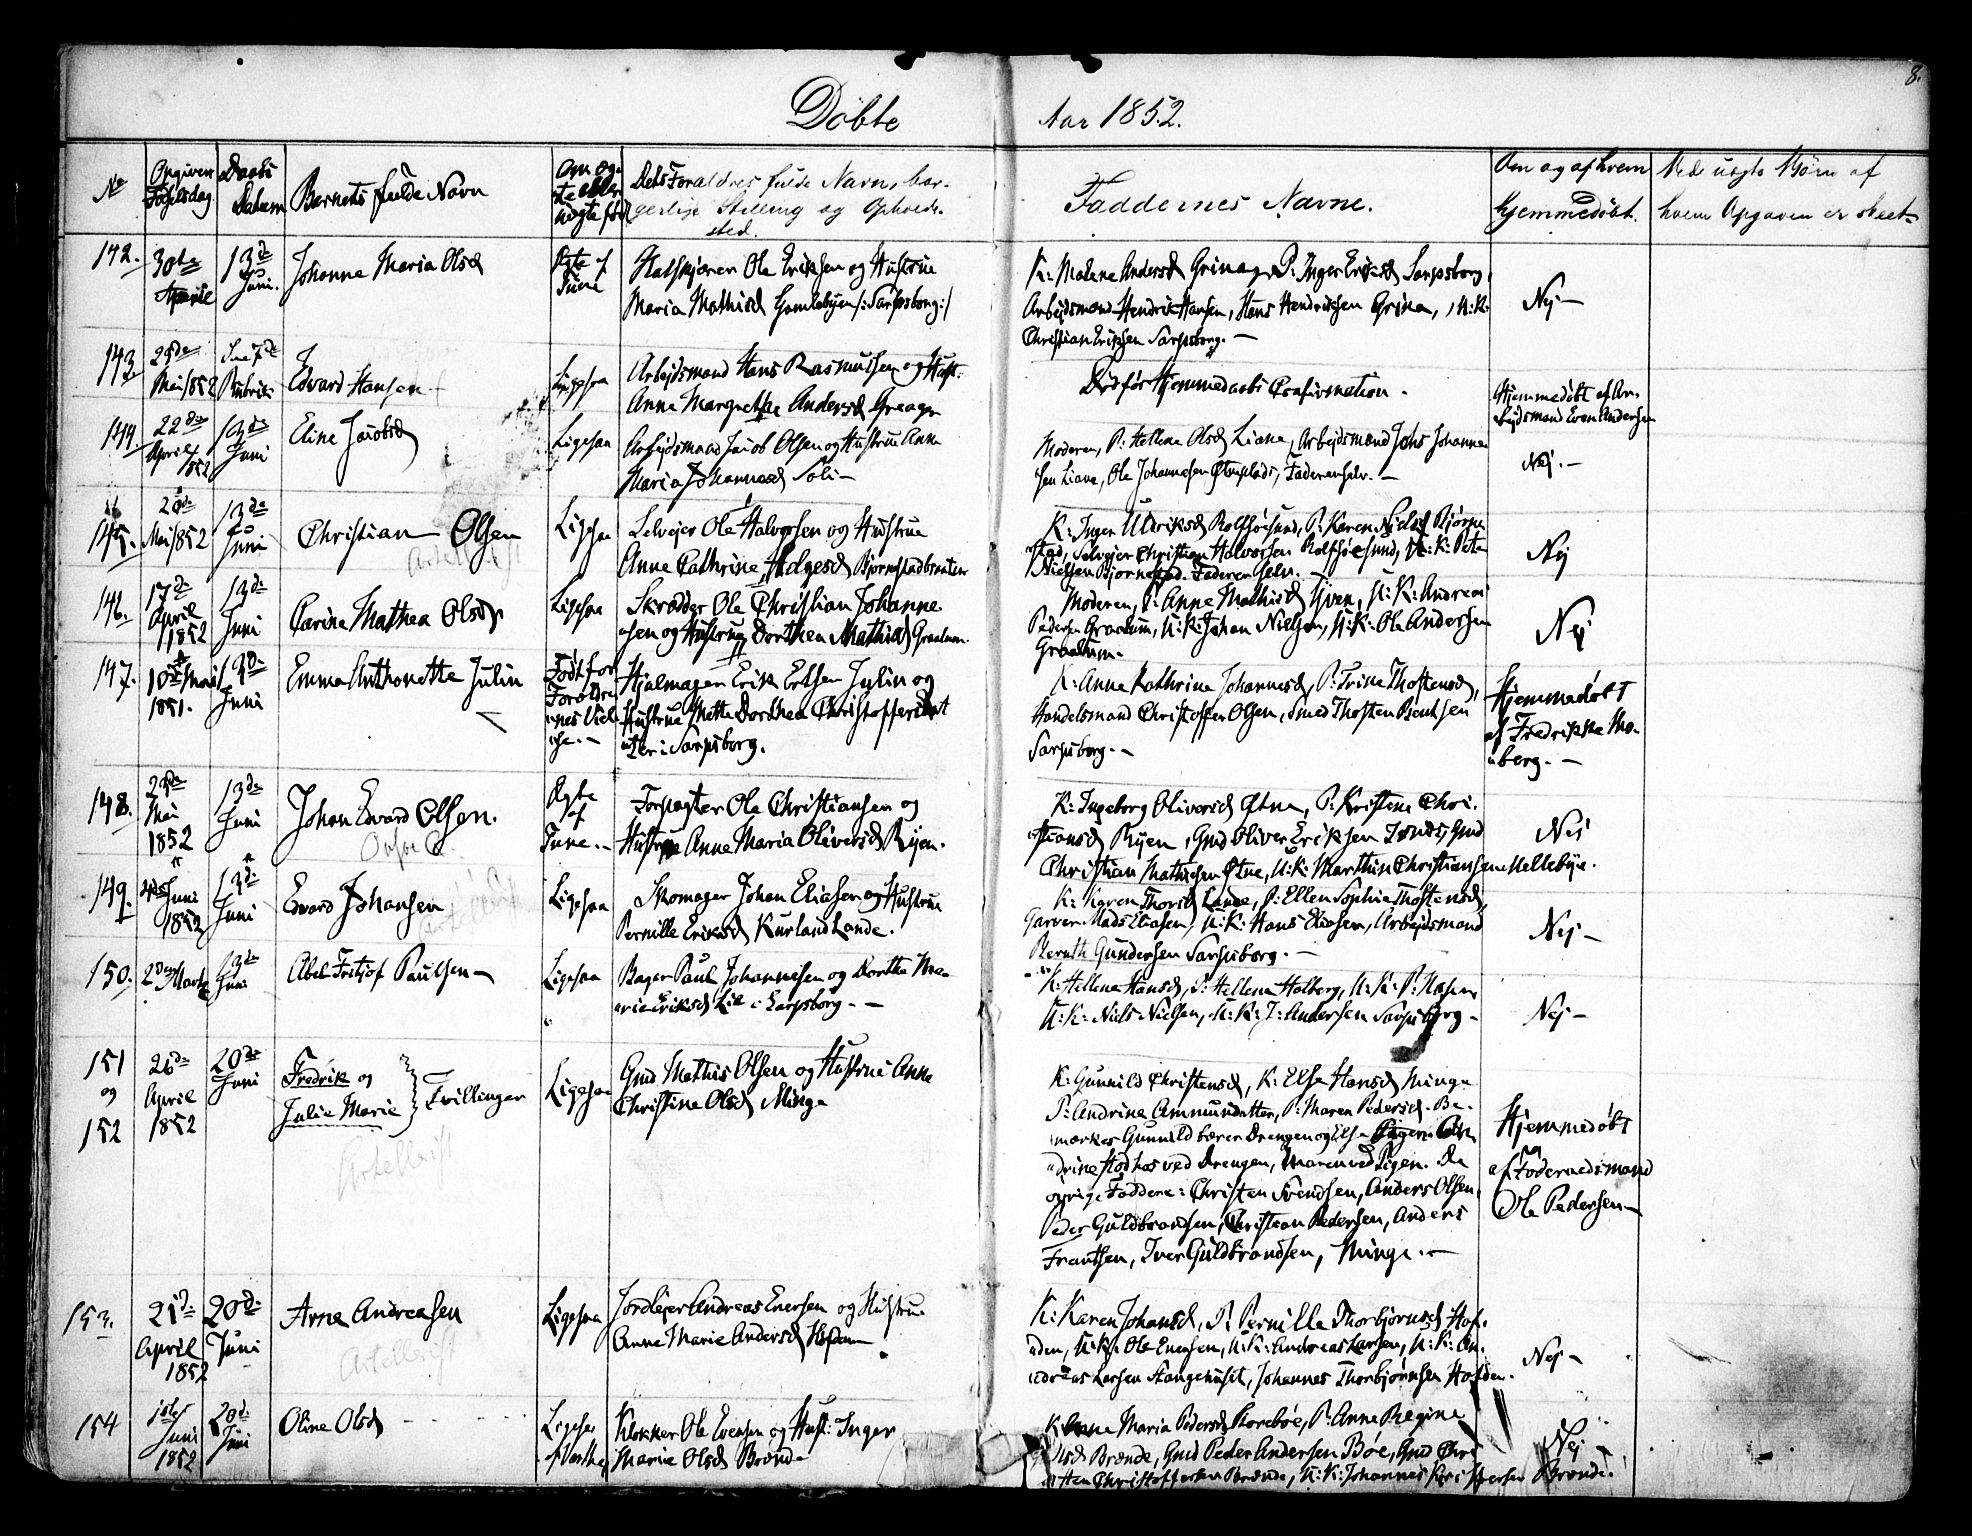 8.
Døbte Aar 1852.
No
Opgiven Fødselsdag
Daabs Datum
Barnets fulde Navn
Om Ægte eller uægte født
Dets Forældres fulde Navn, borgerlige Stilling og Opholdssted.
Faddernes Navne.
Om og af hvem hjemmedøbt.
Ved uægte Børn af hvem Opgaven er skeet
142. 30te April 13de Juni. Johanne Maria Olsd Ægte af Tune
Ole Eriksen og Hustrue
Maria Mathisd Gamlebyen /:Sarpsborg:/
K: Malene Andersd P: Inger Eriksd Sarpsborg,
Arbeidsmand Hendrik Hansen, Hans Hendriksen , U:K:
Christian Eriksen Sarpsborg. —
Nej —
143. Mai 1852 Rubrik Edvard Hansen Ligesaa
Arbejdsmand Hans Rasmussen og Hust:
Anne Margrethe Andersd
Død før Hjemmedaabs Confirmation.
Hjemmedøbt af Arbejdsmand Even Andersen
144. 22de April 1852 13de Juni Eline Jacobsd Ligesaa
Arbejdsmand Jacob Olsen og Hustrue Anne
Maria Johannesd Soli —
Moderen, P: Hellene Olsd Liane, Arbejdsmand Johannessen Liane, Ole Johannesen , Faderen selv. —
Nej. —
145. Mai 1852 13de Juni Christian Olsen Ligesaa
Selvejer Ole Halvorsen og Hustrue
Anne Cathrine Helgesd Bjørnstadbraaten
K: Inger Ulriksd Rolfsøesund, P: Karen Nielsd Bjørnestad, Selvejer Christian Halvorsen Rolfsøesund, U:K: Peter
Nielsen Bjørnestad. Faderen selv.
Nej
146. 17de April 1852 13de Juni Carine Mathea Olsd Ligesaa
Skrædder Ole Christian Johannesen og Hustrue Dorthea Mathiasd Graalum.
Moderen, P: Anne Mathisd Tyven, U:K: Andreas
Pedersen Graalum, U:K: Johan Nielsen, U:K: Ole Andersen
Graalum. —
Nej
147. 10de Mai 1851. 13de Juni Emma Anthonette Julin Født før Forældrenes Vielse. —
Hjulmager Erik Julin og
Hustrue Mette Dorthea Christoffersdat
i Sarpsborg.
K: Anne Kathrine Johannesd, P: Trine Thostensd,
Handelsmand Christoffer Olsen, Smed Thosten Bentsen
Sarpsborg. —
Hjemmedøbt af Fredrikke Moberg. —
148. Mai 1852 13de Juni Johan Edvard Olsen. Ægte af Tune. —
Forpagter Ole Christiansen og
Hustrue Anne Maria Oliversd Ryen.
K: Ingeborg Oliversd Østne, P: Kristine Christiansd Ryen, Gmd Oliver Eriksen , Gmd
Christian Mathisen Østne, U:K: Marthin Christiansen Mellebye.
Nei
149. Juni 1852 13de Juni Edvard Johansen Ligesaa
Skomager Johan Eliasen og Hustrue
Pernille Eriksd Kurland Lande.
K: Karen Thorisd Lande, P: Ellen Sophie Thostensd,
Garver Mads Eliasen, U:K: Hans Eliasen, Arbejdsmand
Gundersen Sarpsborg. —
Nej —
150. 2den Marts 13de Juni Abel Fritjof Paulsen — Ligesaa
Bager Paul Johannesen og Dorthe Marie Eriksd Lie i Sarpsborg. —
K: Hellene Hansd, P: Hellene Holberg, U:K: P: Hagen,
U:K: Niels Nielsen, U:K: J: Andersen Sarpsborg —
Nej —
151 og 152 26de April 1852 20de Juni Fredrik og Julie Marie Tvillinger Ligesaa
Gmd Mathis Olsen og Hustrue Anne
Christine Olsd Minge
K: Gunnild Christensd, K: Else Hansd Minge
P: Andrine Ammundatter, P: Maren Pedersd. Bemærkes Gunnild bærer Drengen og Else Pigen. Andrine stod hos ved Drengen, Maren ved Pigen. De
øvrige Faddere: Christen Svendsen, Anders Olsen,
Peder Guldbrandsen, Christian Pedersen, Anders
Frantsen, Iver Guldbrandsen, Minge. —
Hjemmedøbt af Føderaadsmand Ole Pedersen —
Artellerist
153. 21de April 1852 20de Juni Arne Andreasen Ligesaa
Jordejer Andreas Evensen og Hustrue
Anne Marie Andersd Hafden
Artellerist
K: Karen Johansd, P: Pernille Thorbjørnsd Hafden, U:K: Ole Evensen, U:K: Andreas Larsen, U:K: Andreas Larsen Stangehuset, Johannes Thorbjørnsen Hafden.
Nej —
154 1ste Juni 1852 20de Juni Oline Olsd Ligesaa
Klokker Ole Evensen og Hust: Inger
Marie Olsd Brønde
K: Anne Maria Pedersd , P: Anne Regine
Olsd Brønde, Gmd Peder Andersen Bøe, Gmd
Christoffersen Brønde, U:K: Johannes Brønde.
Nej